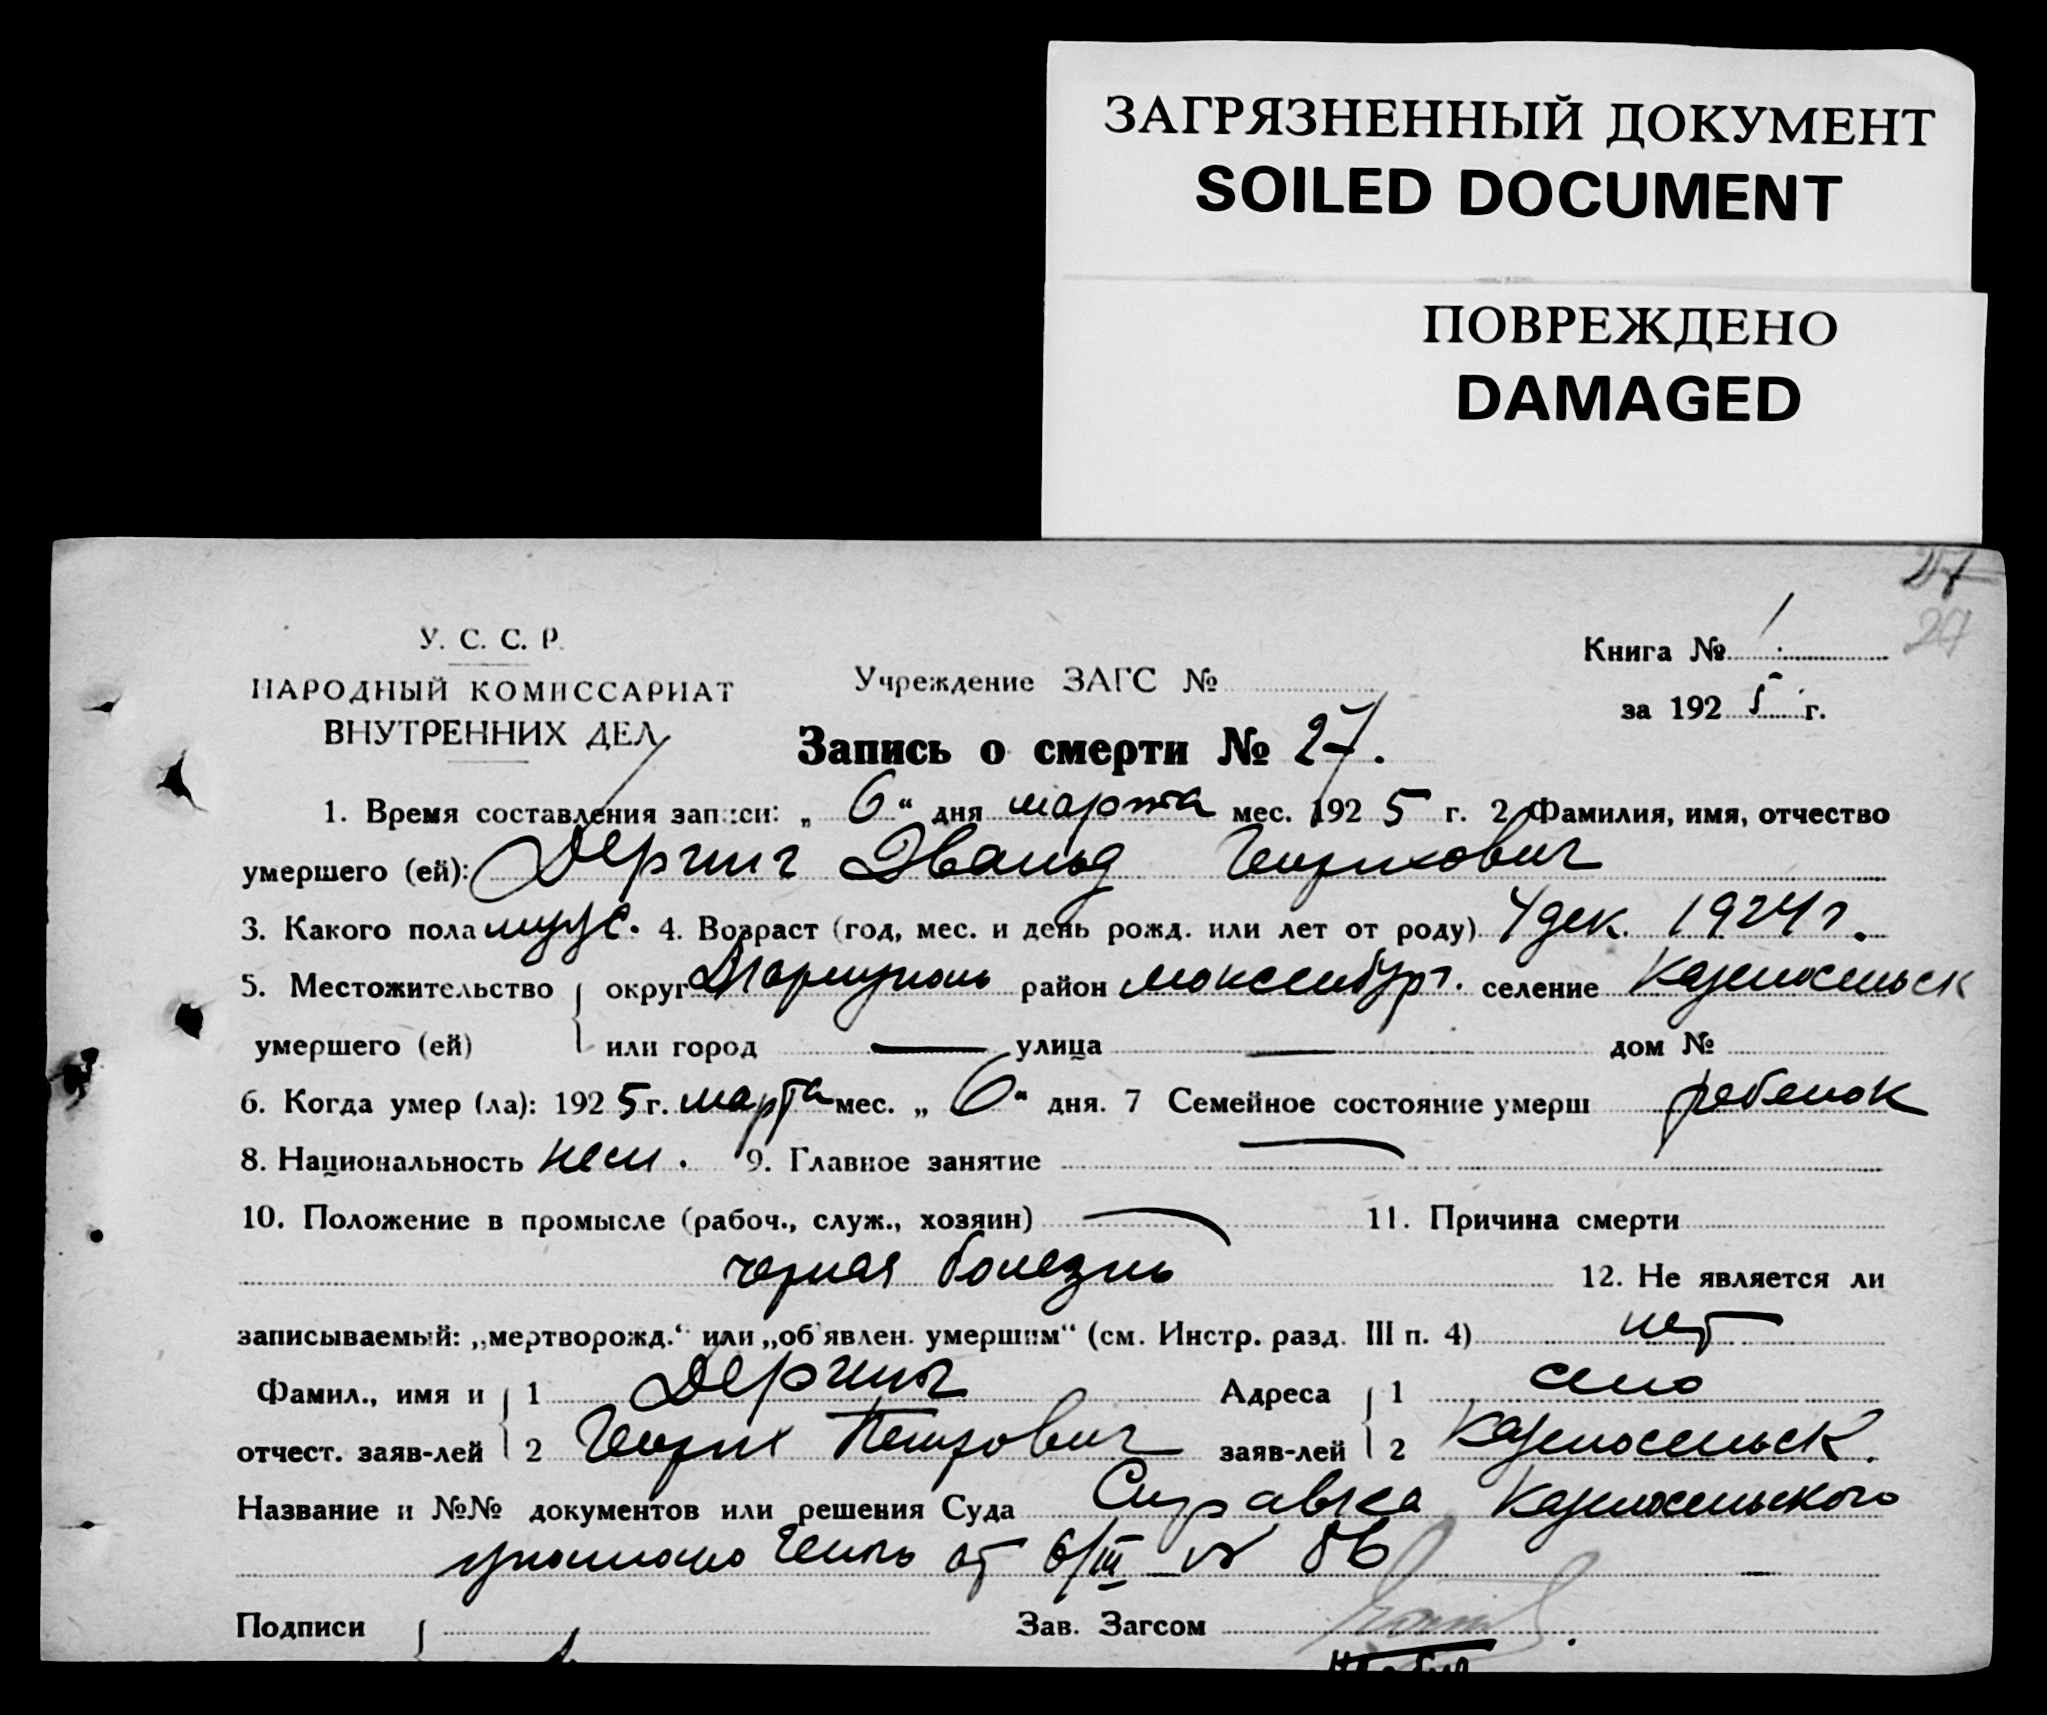 ЗАГРЯЗНЕННЫЙ ДОКУМЕНТ
SOILED DOCUMENT
ПОВРЕЖДЕНО
DAMAGED
27
27
У. С. С. Р.
Книга № 1
НАРОДНЫЙ КОМИССАРИАТ
Учреждение ЗАГС №
ВНУТРЕННИХ ДЕЛ
за 1925 г.
Запись о смерти № 27.
1. Время составления записи: „ 6 “ дня марта мес. 1925 г. 2 Фамилия, имя, отчество
умершего (ей): Дергинг Эвальд Генрихович
3. Какого пола муж. 4. Возраст (год, мес. и день рожд. или лет от роду) 4 дек. 1924 г.
5. Местожительство округ Мариуполь район люксембург. селение
умершего (ей) или город — улица — дом №
6. Когда умер (ла): 1925 г. марта мес. „ 6 “ дня. 7 Семейное состояние умерш ребенок
8. Национальность нем. 9. Главное занятие —
10. Положение в промысле (рабоч., служ., хозяин) — 11. Причина смерти
черная болезнь 12. Не является ли
записываемый: „мертворожд.“ или „об'явлен. умершим“ (см. Инстр. разд. III п. 4) нет
Фамил., имя и 1 Дергинг Адреса 1 село
отчест. заяв-лей 2 Генрих Петрович заяв-лей 2
Название и №№ документов или решения Суда Справка
от 6/III № 56
Подписи Зав. Загсом